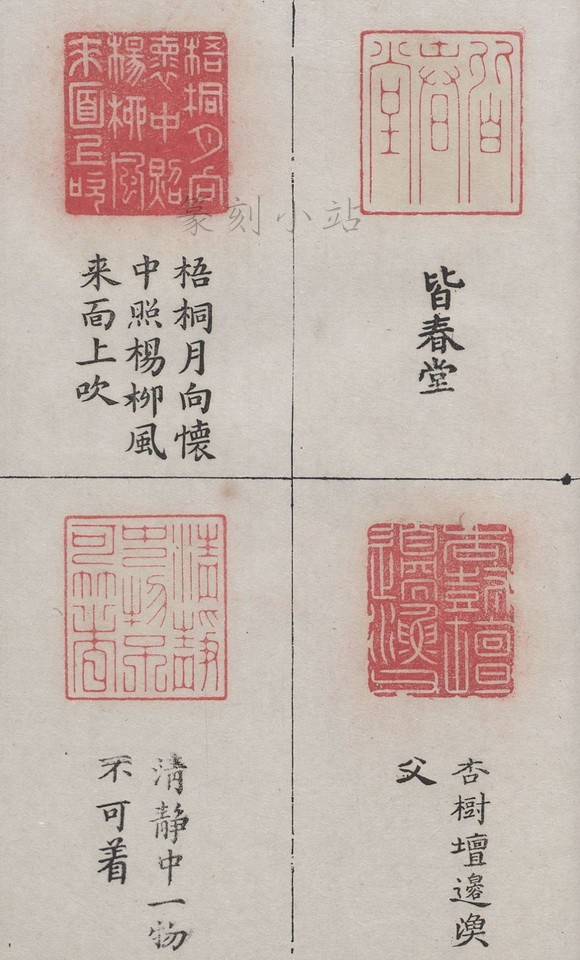 皆春堂
梧桐月向懷
中照楊柳風
来面上吹
杏樹壇邊漁
父
清靜中一物
不可着
篆刻小站